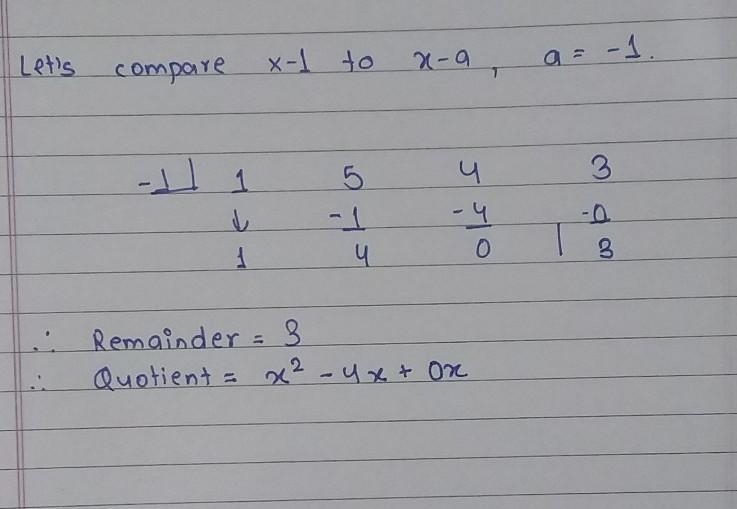 Let's compare x-1 to x-a, a = -1.
-1⅃ 1 5 4 3
↓ -1 -4 -0
1 4 0 | 3
∴ Remainder = 3
∴ Quotient = x² - 4x + 0x